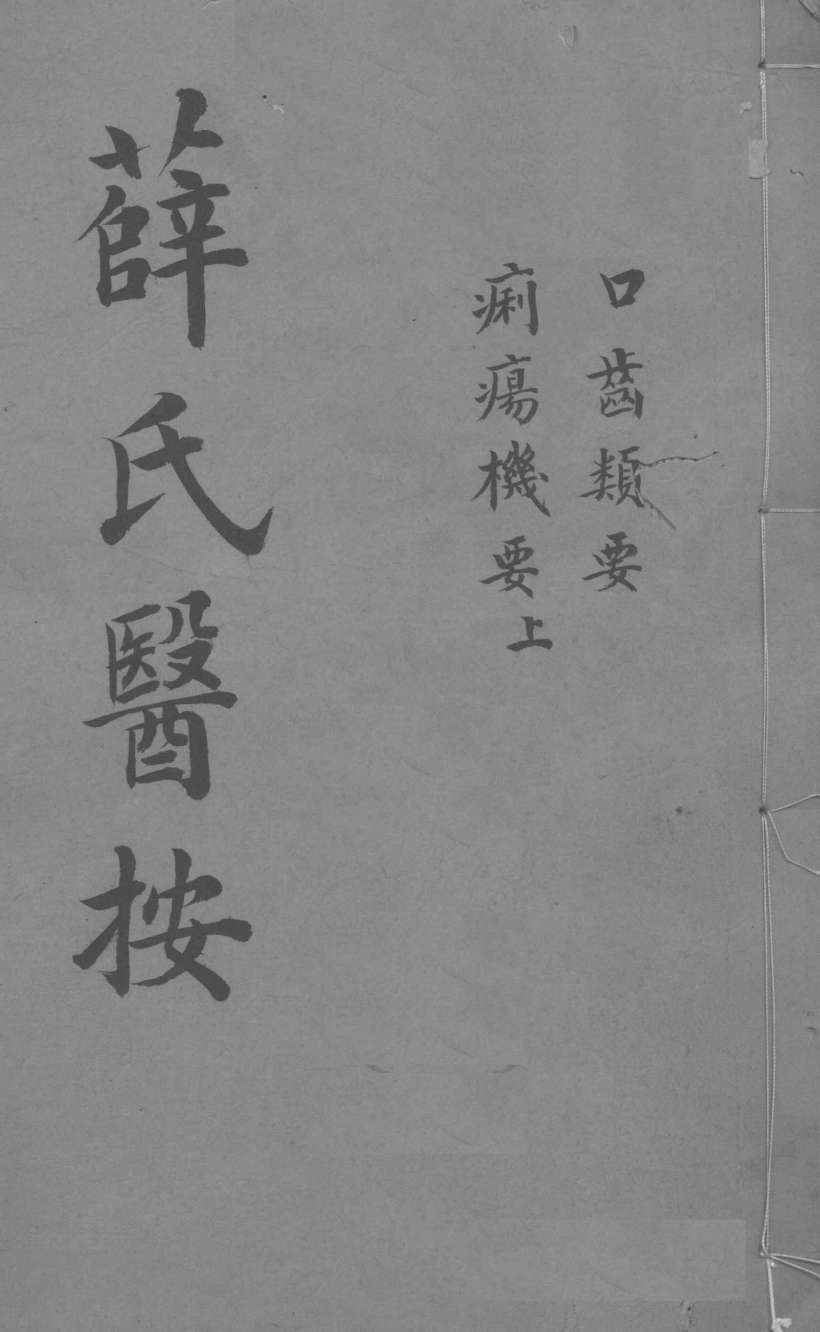 口齒類要
痢瘍機要上
薛氏醫按